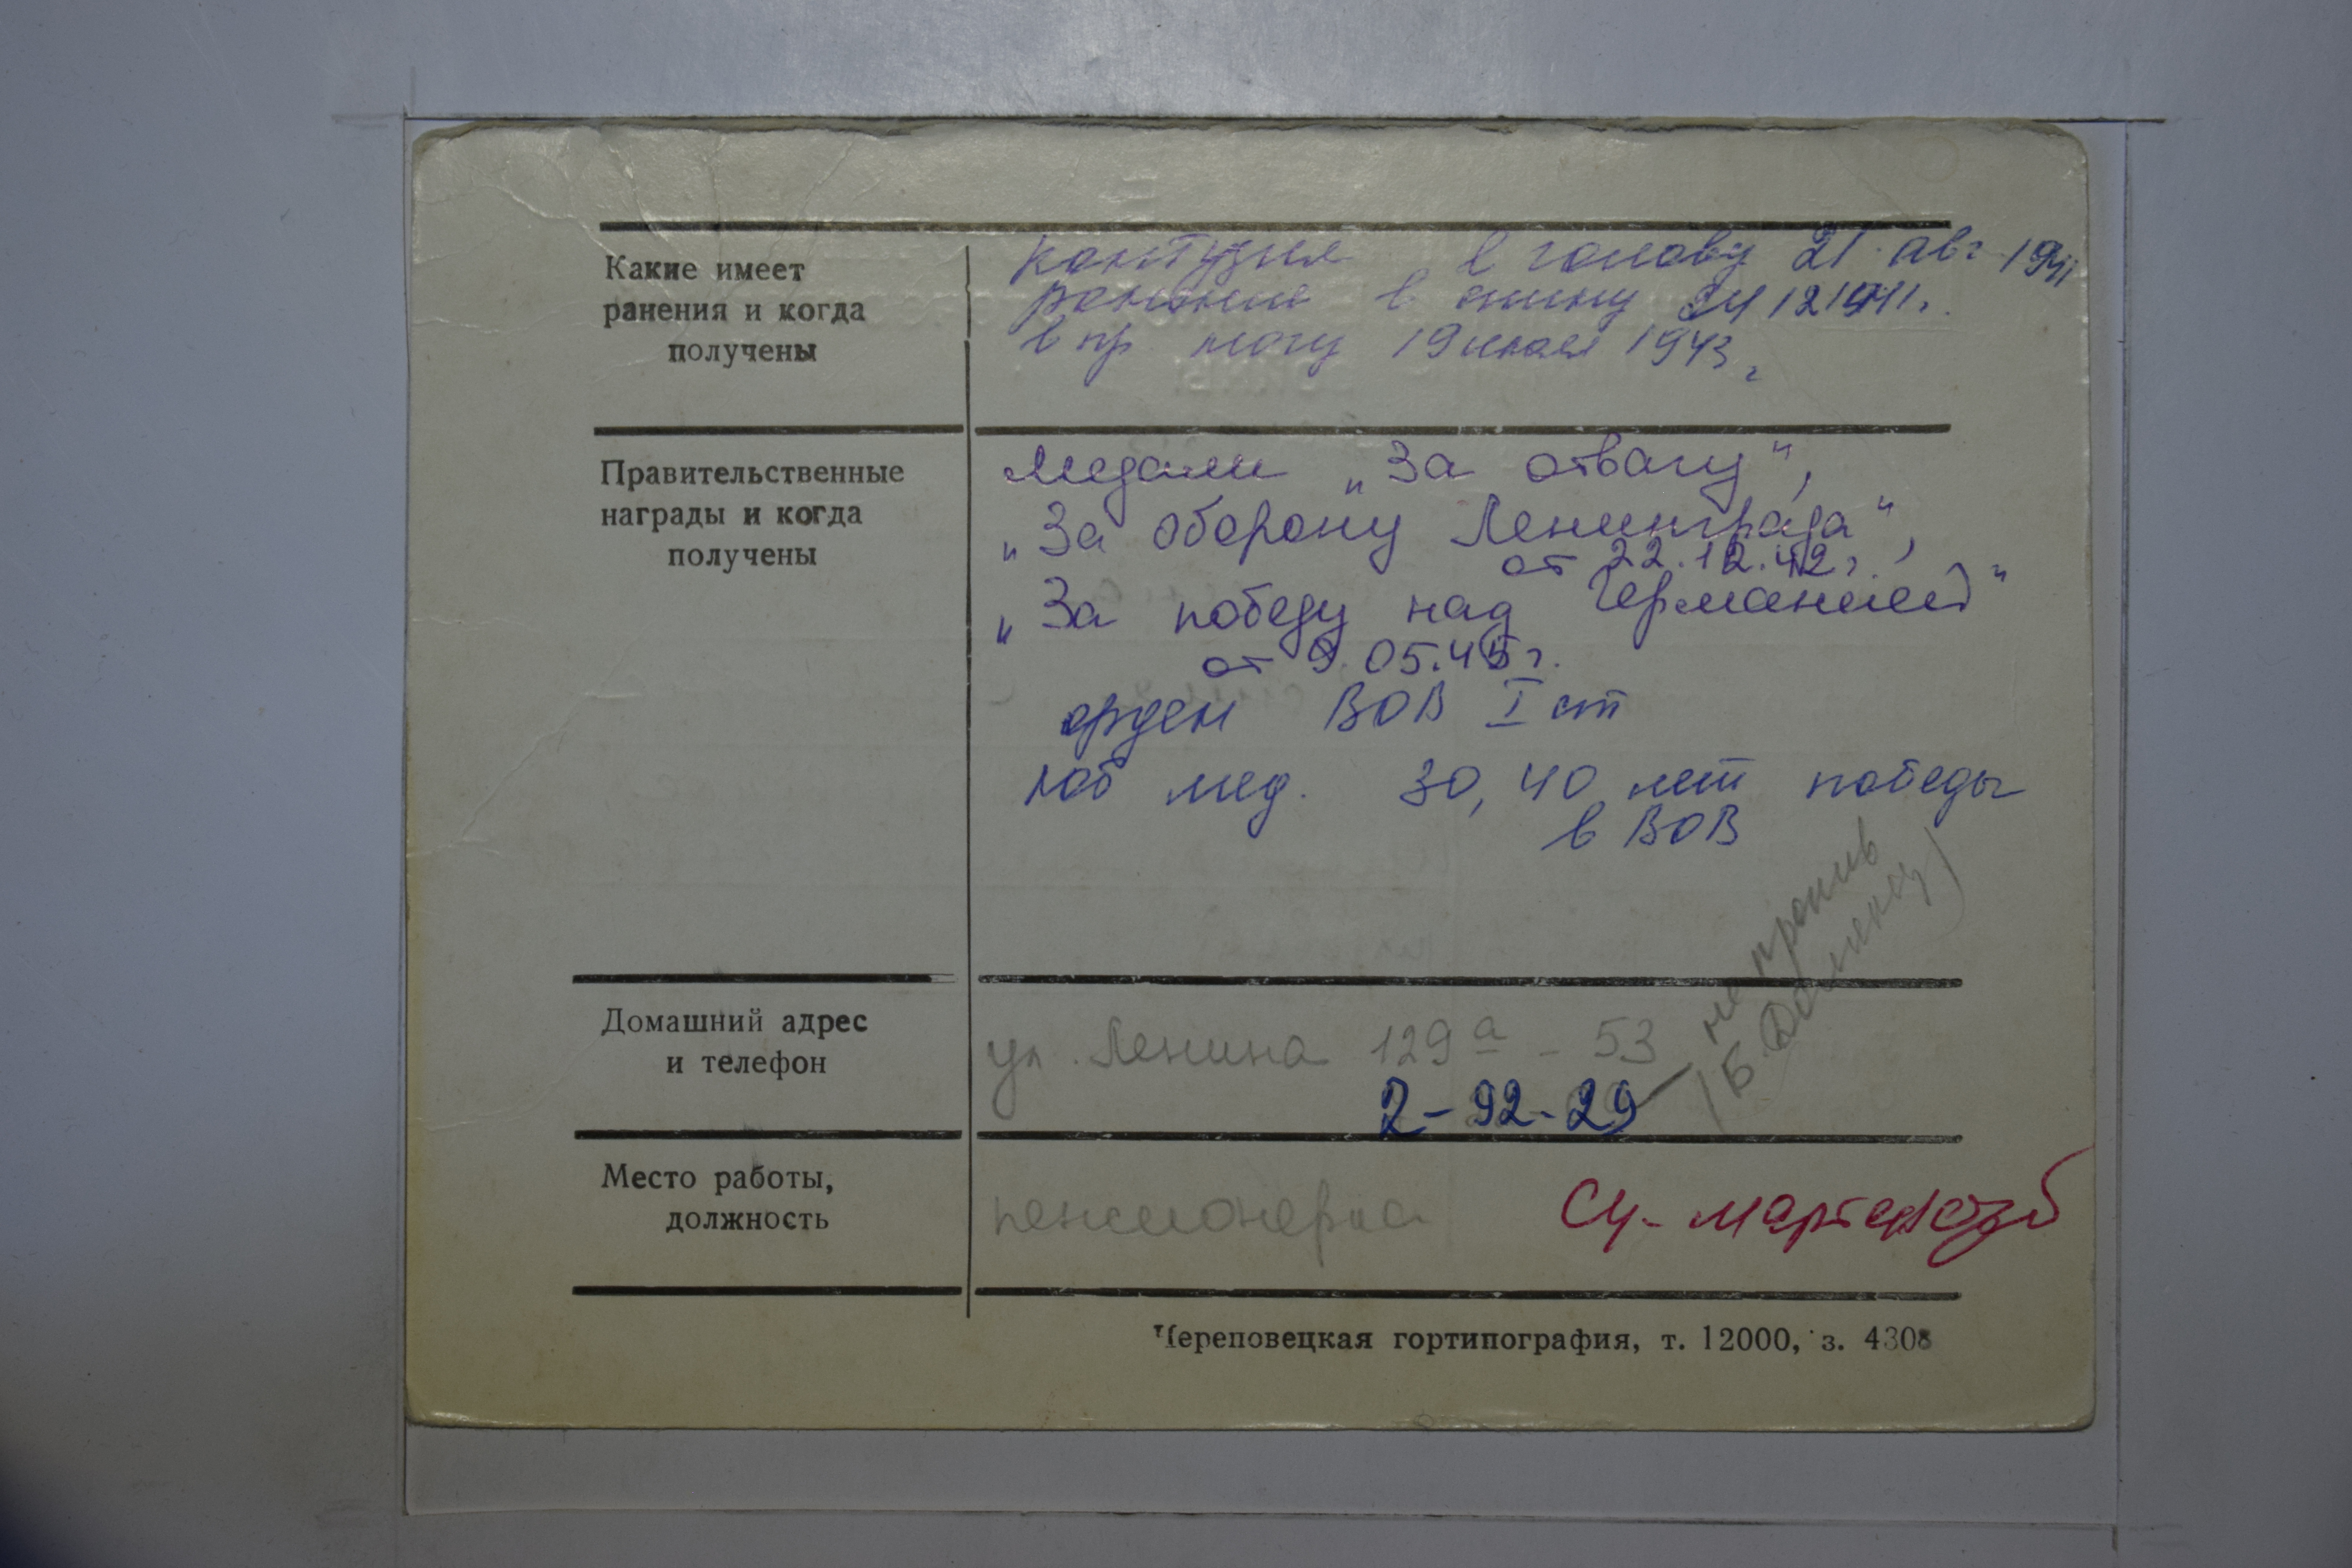 Какие имеет
ранения и когда
получены
контузия в голову 21 авг 1941
ранение в спину 24 12 1941 г.
в пр. ногу 19 июля 1943 г
Правительственные
награды и когда
получены
медали „За отвагу",
„За оборону Ленинграда",
от 22.12.42 г.
„За победу над Германией"
от 9.05.45 г.
орден ВОВ I ст
юб мед. 30, 40 лет победы
в ВОВ
Домашний адрес
и телефон
ул. Ленина 129а - 53
2-92-29
не против
Место работы,
должность
пенсионерка
Череповецкая гортипография, т. 12000, з. 4308